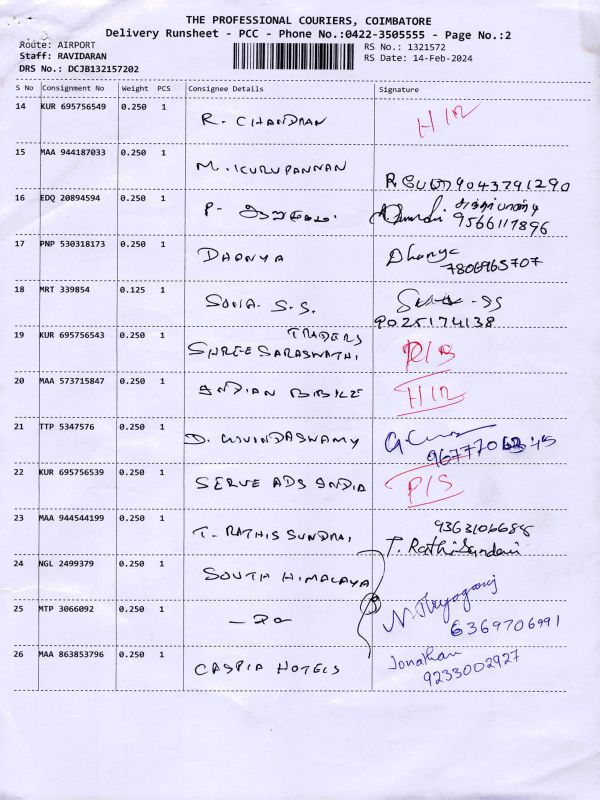 THE PROFESSIONAL COURIERS, COIMBATORE
Delivery Runsheet - PCC - Phone No.:0422-3505555 - Page No.:2
Route: AIRPORT
RS No.: 1321572
Staff: RAVIDARAN
RS Date: 14-Feb-2024
DRS No.: DCJB132157202
S No Consignment No Weight PCS Consignee Details Signature
14 KUR 695756549 0.250 1 R. CHANDRAN
15 MAA 944187033 0.250 1 M. KURUPANNAN 9043791290
16 EDQ 20894594 0.250 1 P. 9566117896
17 PNP 530318173 0.250 1 DHANYA Dhanya
7806965707
18 MRT 339854 0.125 1 SONIA. S.S.
9025174138
TRADERS
19 KUR 695756543 0.250 1 SHREE SARASWATHI
20 MAA 573715847 0.250 1 INDIAN
21 TTP 5347576 0.250 1 D. GOVINDASWAMY
22 KUR 695756539 0.250 1 SERVE ADS INDIA
23 MAA 944544199 0.250 1 T. RATHIS SUNDRAI 9363106688
T. Rathisundari
24 NGL 2499379 0.250 1 SOUTH HIMALAYA
25 MTP 3066092 0.250 1 — Do N. Thyagaraj
6369706991
26 MAA 863853796 0.250 1 CASPIA HOTELS Jonathan
9233002927